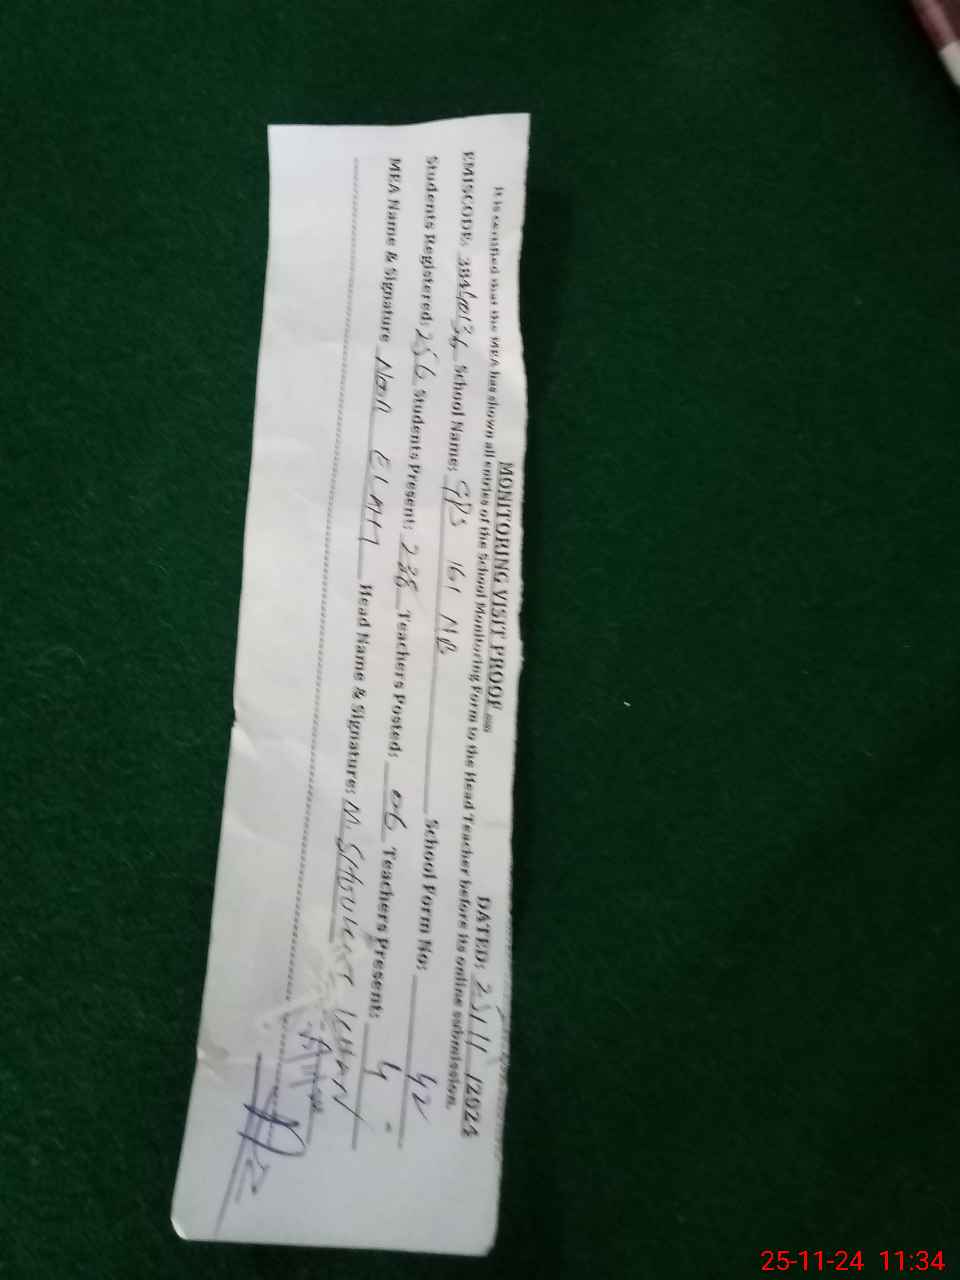 MONITORING VISIT PROOF DATED: 25/11/2024
It is certified that the MEA has shown all entries of the School Monitoring Form to the Head Teacher before its online submission.
EMISCODE: School Name: GPS 161 NB School Form No: 42
Students Registered: 256 Students Present: 238 Teachers Posted: 06 Teachers Present: 4
MEA Name & Signature Noor ELAHI Head Name & Signature: M. KHAN
25-11-24 11:34